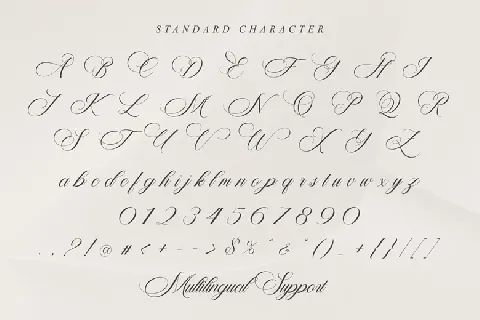 STANDARD CHARACTER
A B C D E F G H I
J K L M N O P Q R
S T U V W X Y Z
a b c d e f g h i j k l m n o p q r s t u v w x y z
0 1 2 3 4 5 6 7 8 9 0
. , ? ! @ # < + - - > $ % ^ & * ( ) _ + { } [ ]
Multilingual Support